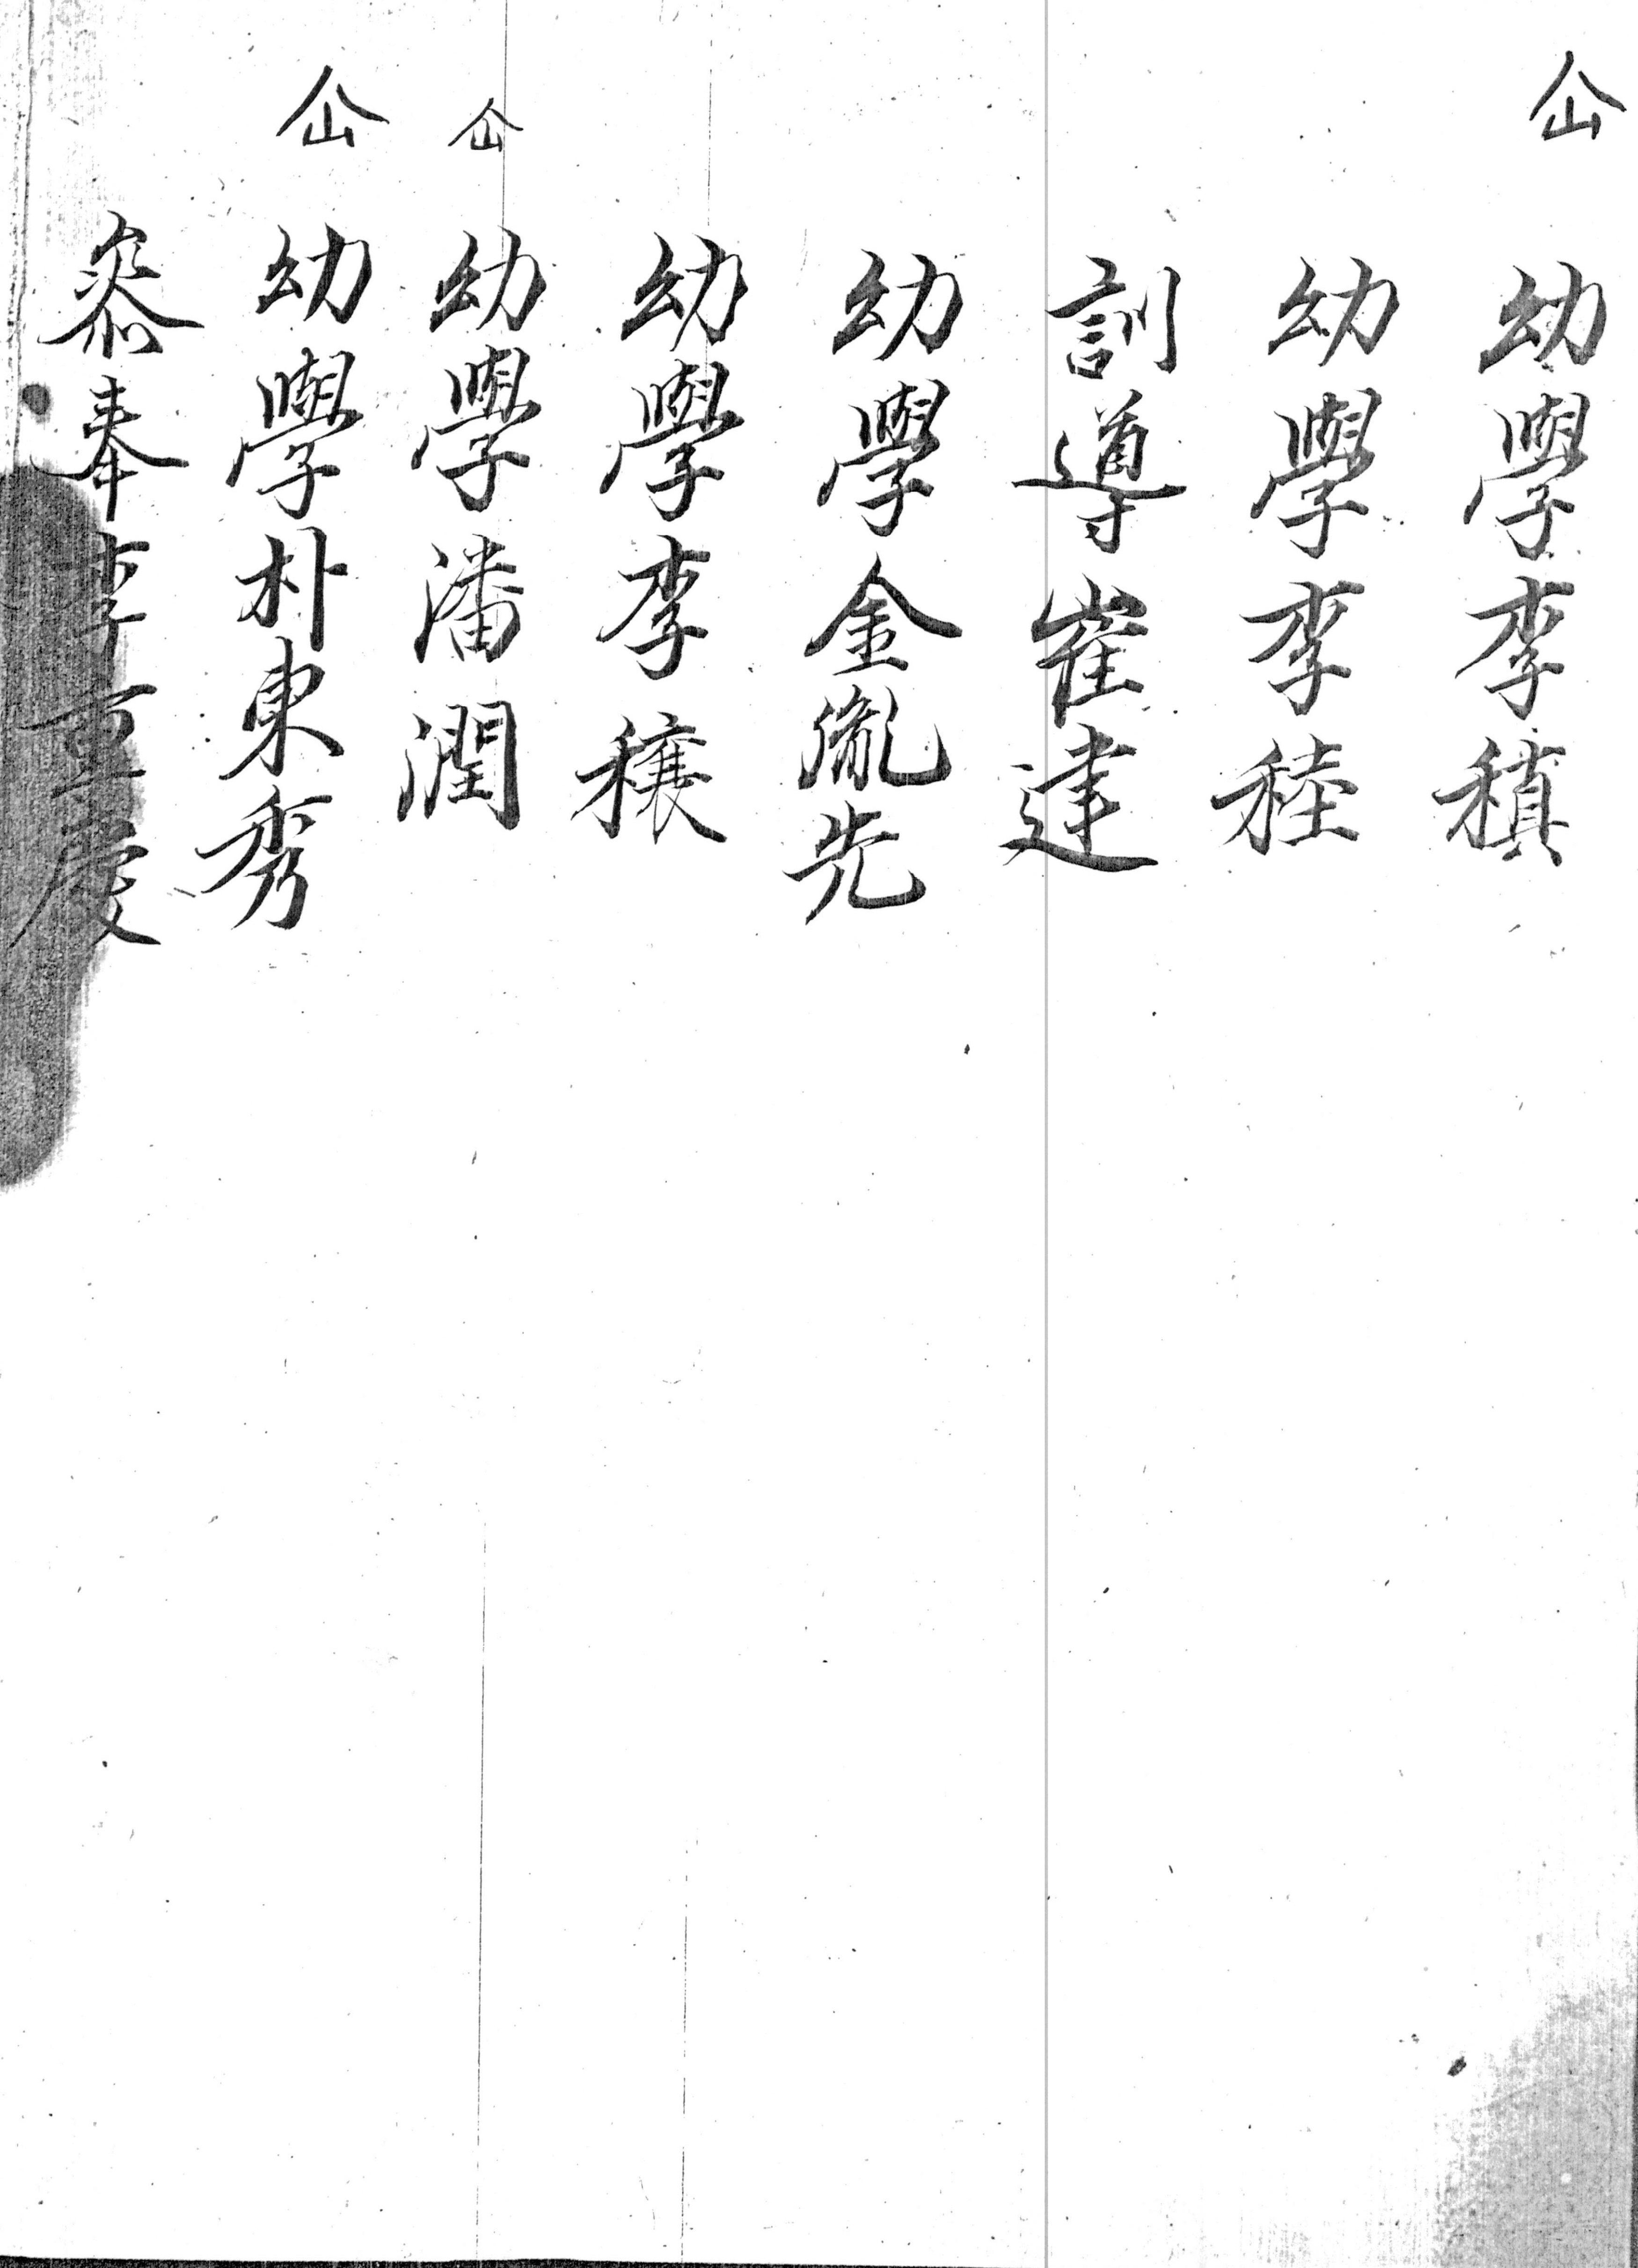 仚 幼學李稹
幼學李稑
訓導崔建
幼學金胤先
幼學李穰
仚 幼學潘潤
仚 幼學朴東秀
叅奉李重慶